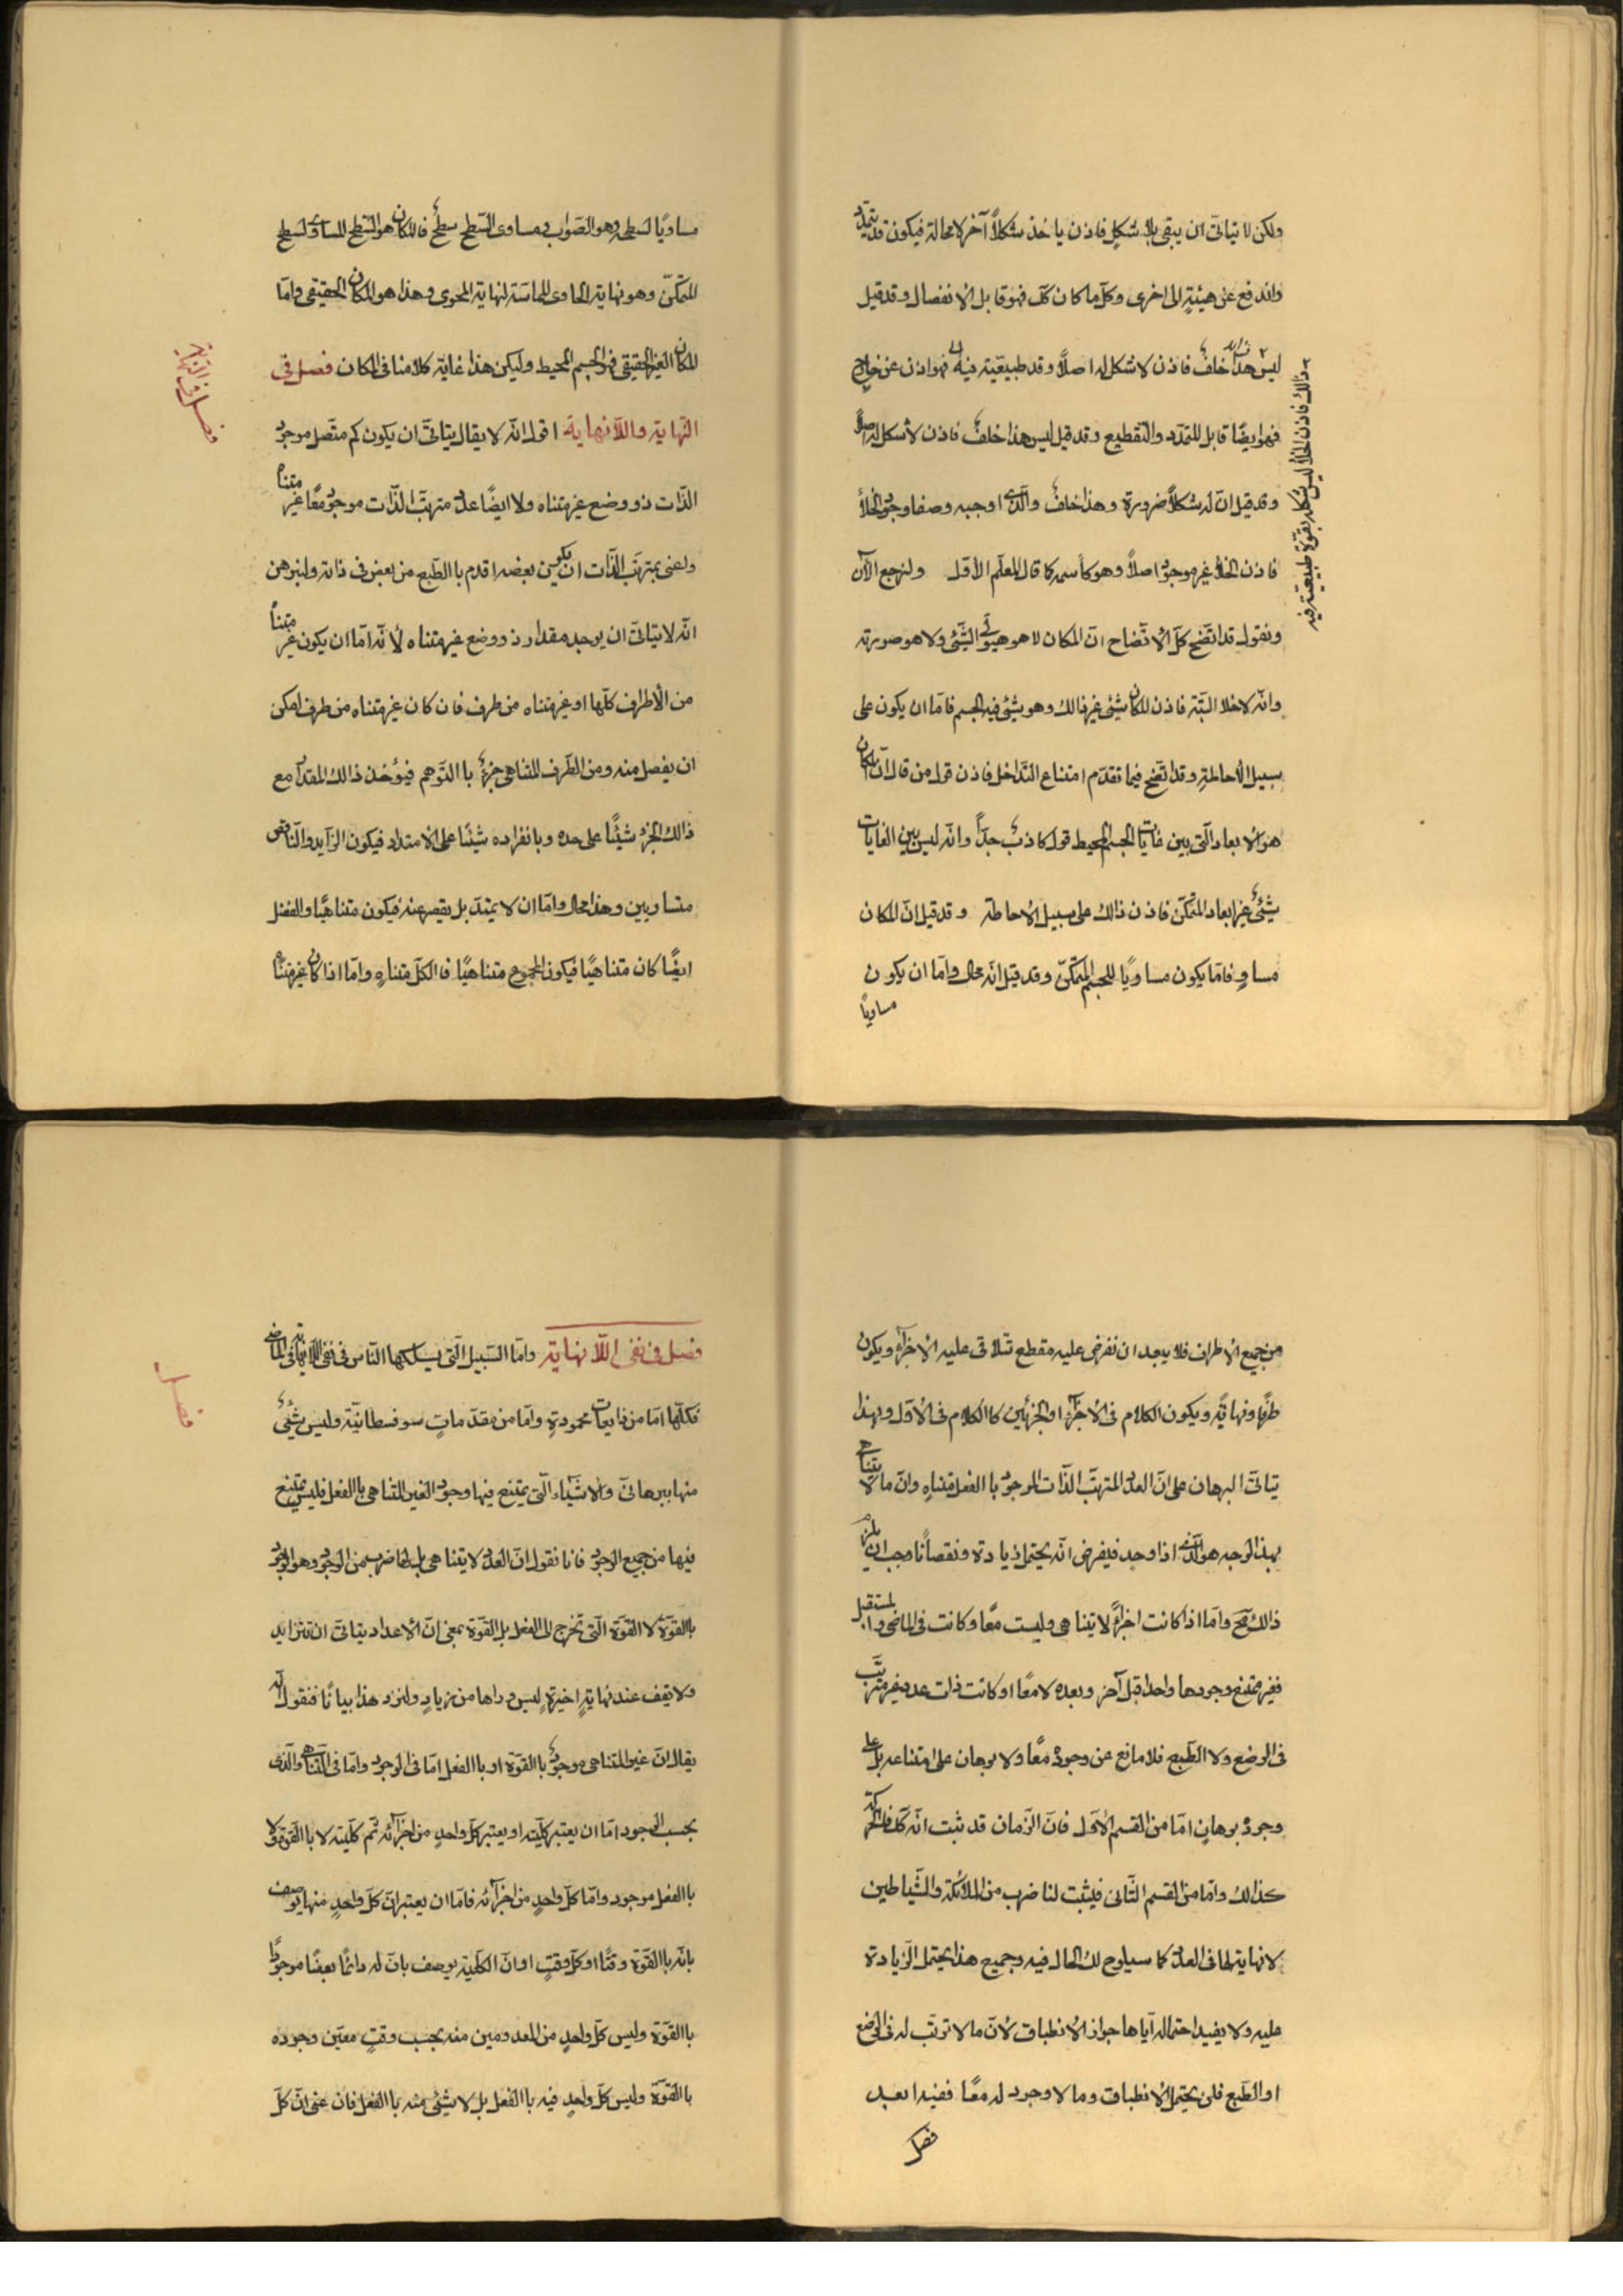 ولكن لا يتاتّى ان يبقى بلا شكلٍ فاذن ياخذ شكلاً آخر لا محالة فيكون قد يتمدّد
واندفع عن هيئةٍ الى اخرى وكلّ ما كان كك فهو قابل الانفصال وقد قيل
ليس هذا خلفٌ فاذن لا شكل له اصلاً وقد طبيعيّة فيه فهو اذن عن خارج
فهو ايضًا قابل للتمدّد والتقطيع وقد قيل ليس هذا خلفٌ فاذن لا شكل له اصلاً
وقد قيل انّ له شكلاً ضرورة وهذا خلفٌ والّذى اوجبه وصفا وجود الخلأ
فاذن الخلأ غير موجودٍ اصلاً وهو كأسمه كما قال المعلّم الأوّل ولنرجع الآن
ونقول قد اتّضح كلّ الاتّضاح انّ المكان لا هو هيولى الشّئ ولا هو صورته
وانّه لا خلا البتّة فاذن المكان شئ غير ذالك وهو شئ فيه الجسم فامّا ان يكون على
سبيل الأحاطةِ وقد اتّضح فيما تقدّم امتناع التّداخل فاذن قول من قال انّ المكان
هو الابعاد الّتى بين غايات الجسم المحيط قول كاذبٌ جدّاً وانّه ليس بين الغايات
شئٌ غير ابعاد المتمكّن فاذن ذالك على سبيل الأحاطة وقد قيل انّ المكان
مساوٍ فامّا يكون مساويًا للجسم المتمكّن وقد قيل انّه محال وامّا ان يكون
مساويًا
ذالك فاذن الخلأ ليس شكله بقوّة طبيعيّة فيه
مساويًا لسطحه وهو الصّواب ومساوى السّطح سطحٌ فالمكان هو السّطح المساوى لسطح
المتمكّن وهو نهاية الحاوى المماسّة لنهاية المحوى وهذا هو المكان الحقيقى وامّا
المكان الغير الحقيقى فهو الجسم المحيط وليكن هذا غاية كلامنا فى المكان فصل فى
النّهاية واللّانهاية اقول انّه لا يقال يتاتّى ان يكون كم متّصل موجود
الذّات ذو وضع غير متناه ولا ايضًا عدد مترتّب الذّات موجود معًا غير متناه
واعنى بمترتّب الذّات ان يكون بعضه اقدم باالطّبع من بعض فى ذاته ولنبرهن
انّه لا يتاتّى ان يوجد مقدار ذو وضع غير متناه لأنّه امّا ان يكون غير متناه
من الأطراف كلّها او غير متناه من طرف فان كان غير متناه من طرف امكن
ان يفصل منه ومن الطّرف المتناهى جزءٌ باالتّوهم فيؤخذ ذالك المقدار مع
ذالك الجزء شيئًا على حده وبانفراده شيئًا على الامتداد فيكون الزّايد والنّاقص
متساويين وهذا محال وامّا ان لا يمتدّ بل يقصر عنه فيكون متناهيًا والفضل
ايضًا كان متناهيًا فيكون المجموع متناهيًا فالكلّ متناهٍ وامّا اذا كان غير متناهٍ
من جميع الأطراف فلا يبعد ان نفرض عليه مقطع تتلاقى عليه الاجزاء ويكون
طرفًا ونهايةً ويكون الكلام فى الاجزاء او الجزئين كاالكلام فى الأوّل وبهذا
يتاتّى البرهان على انّ العدد المترتّب الذّات الموجود باالفعل متناهٍ وانّ ما لا يتناهى
بهذا الوجه هو الّذى اذا وجد فيفرض انّه يحتمل زيادة ونقصانًا وجب ان يلزم
ذالك مح وامّا اذا كانت اجزاءً لا يتناهى وليست معًا وكانت فى الماضى والمستقبل
فغير ممتنع وجودها واحدا قبل آخر وبعده لا معًا او كانت ذات عدد غير مترتّب
فى الوضع ولا الطّبع فلا مانع عن وجوده معًا ولا برهان على امتناعه بل على
وجوده برهان امّا من القسم الأوّل فانّ الزّمان قد ثبت انّه كك فالحركة
كذالك وامّا من القسم الثّانى فيثبت لنا ضرب من الملائكة والشّياطين
لا نهاية لها فى العدد كما سيلوح لك الحال فيه وجميع هذا يحتمل الزّيادة
عليه ولا يفيد احتماله ايّاها جواز الانطباق لأنّ ما لا ترتّب له فى الوضع
او الطّبع فلن يحتمل الانطباق وما لا وجود له معًا ففيه ابعد
فصل
فصل فى نفى اللّانهاية وامّا السّبيل الّتى يسلكها النّاس فى نفى اللّانهاية فى الماضى
فكلّها امّا من ذايعات محمودةٍ وامّا من مقدّماتٍ سوفسطائيّة وليس شئٌ
منها ببرهانىّ والأشياء الّتى يمتنع فيها وجود الغير المتناهى باالفعل فليس يمتنع
فيها من جميع الوجود فانا نقول انّ العدد لا يتناهى بل لها ضرب من الوجود وهو الوجود
باالقوّة لا القوّة الّتى تخرج الى الفعل بل القوّة بمعنى انّ الأعداد يتاتّى ان تتزايد
ولا يقف عند نهايةٍ اخيرةٍ ليس وراها من زيادٍ ولنزد هذا بيانًا فنقول انّه
يقال انّ غير المتناهى موجودٌ باالقوّة او باالفعل امّا فى الوجود وامّا فى التّناهى والّذى
بحسب الوجود امّا ان يعتبر كلّيته او يعتبر كلّ واحدٍ من اجزائه ثمّ كلّيته لا باالقوّة ولا
باالفعل موجود وامّا كلّ واحدٍ من اجزائه فامّا ان يعتبر انّ كلّ واحدٍ منها يوصف
بانّه باالقوّة وقتًا او كلّ وقتٍ او انّ الكلّية يوصف بانّ له دائمًا بعضًا موجودًا
باالقوّة وليس كلّ واحدٍ من المعدومين منه بحسب وقتٍ معيّن وجوده
باالقوّة وليس كلّ واحدٍ فيه باالفعل بل لا شئ منه باالفعل فان عنى انّ كلّ
فصل